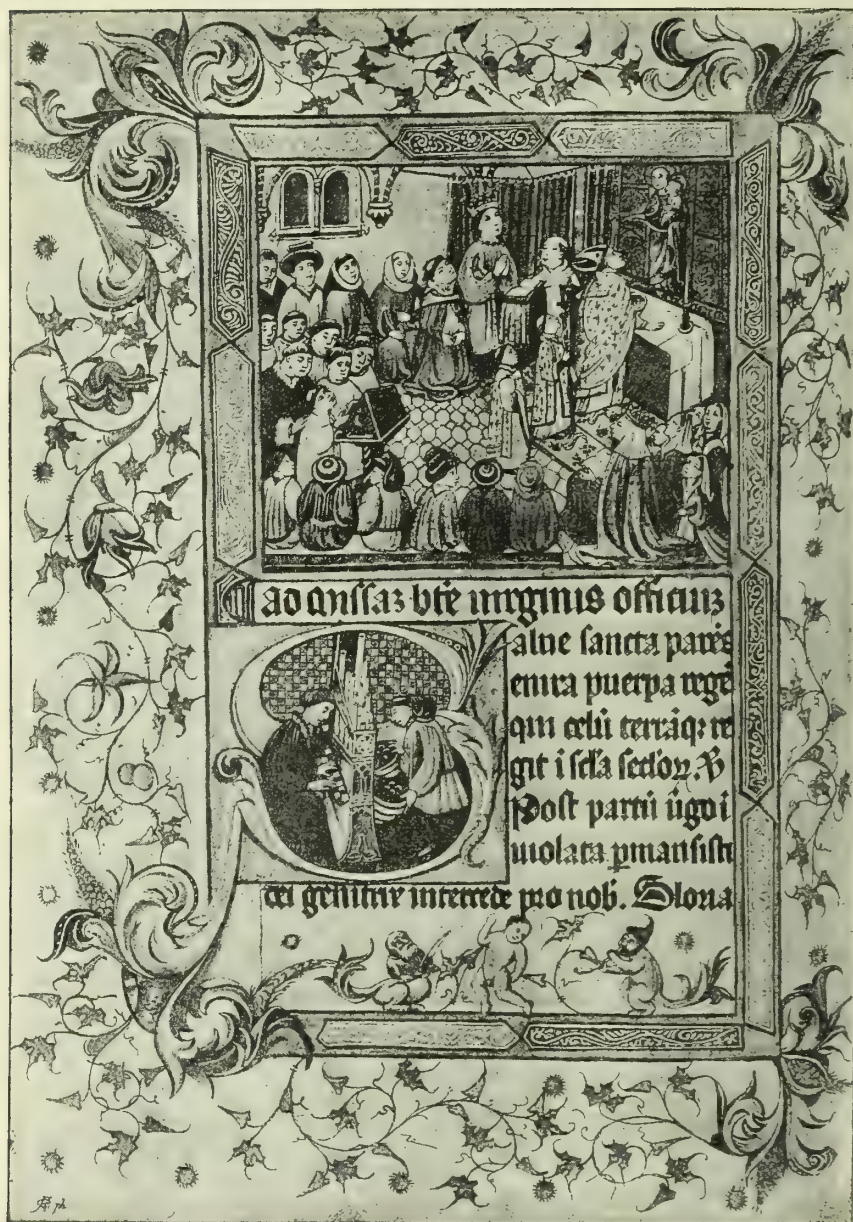 ¶ ad missaz bt̄e virginis officiuz
Salue sancta parēs
enixa puerꝑa regē
qui celū terrāqꝫ re
git i sc̄la sc̄loꝝ. ℣
Post partū v̄go i
uiolata ꝑmansisti
dei genitrix intercede pro nob̄. Gloria